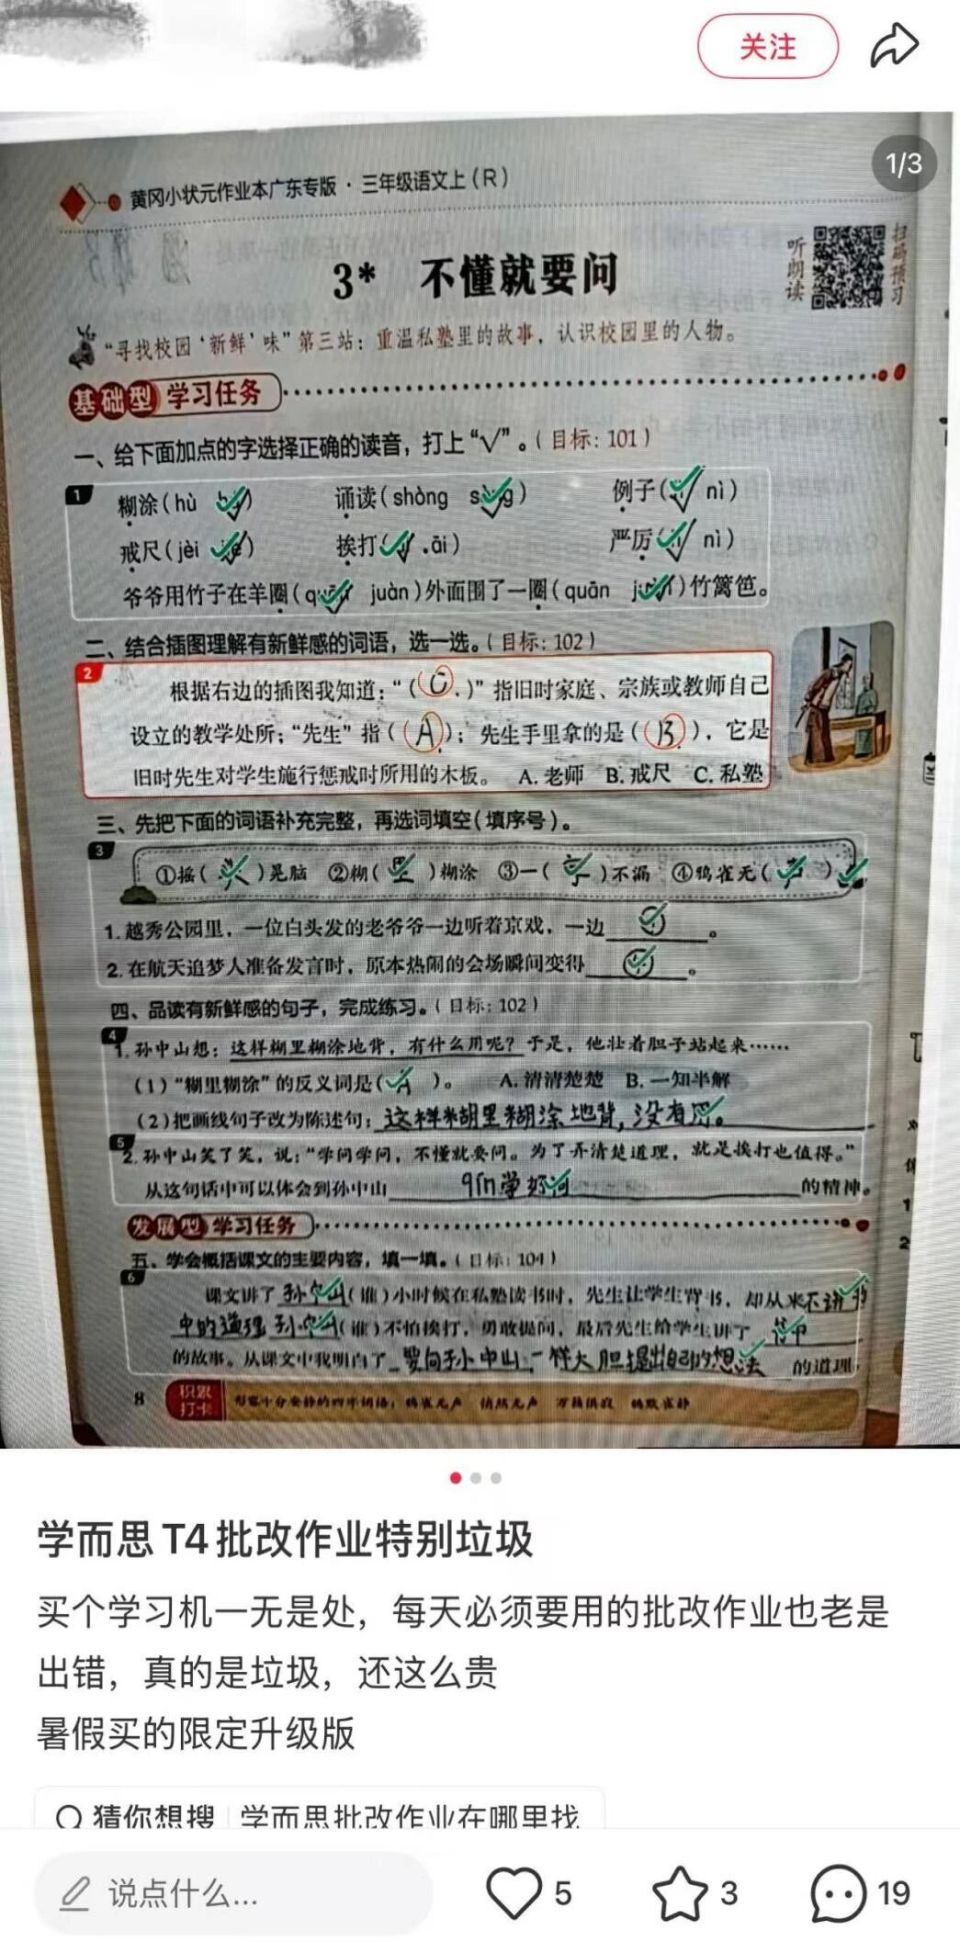 关注
1/3
黄冈小状元作业本广东专版·三年级语文上(R)
3* 不懂就要问
听朗读
扫码预习
“寻找校园‘新鲜’味”第三站：重温私塾里的故事，认识校园里的人物。
基础型 学习任务
一、给下面加点的字选择正确的读音，打上“√”。(目标：101)
1
糊涂(hù ) 诵读(shòng ) 例子( nì)
戒尺(jèi ) 挨打( āi) 严厉( nì)
爷爷用竹子在羊圈( juàn)外面围了一圈(quān )竹篱笆。
二、结合插图理解有新鲜感的词语，选一选。(目标：102)
2
根据右边的插图我知道：“(C)”指旧时家庭、宗族或教师自己
设立的教学处所；“先生”指(A)；先生手里拿的是(B)，它是
旧时先生对学生施行惩戒时所用的木板。 A.老师 B.戒尺 C.私塾
三、先把下面的词语补充完整，再选词填空(填序号)。
3
①摇(头)晃脑 ②糊(里)糊涂 ③一(字)不漏 ④鸦雀无(声)
1.越秀公园里，一位白头发的老爷爷一边听着京戏，一边 。
2.在航天追梦人准备发言时，原本热闹的会场瞬间变得 。
四、品读有新鲜感的句子，完成练习。(目标：102)
4
1.孙中山想：这样糊里糊涂地背，有什么用呢？于是，他壮着胆子站起来……
(1)“糊里糊涂”的反义词是(A)。 A.清清楚楚 B.一知半解
(2)把画线句子改为陈述句：这样糊里糊涂地背，没有用。
5
2.孙中山笑了笑，说：“学问学问，不懂就要问。为了弄清楚道理，就是挨打也值得。”
从这句话中可以体会到孙中山 学好问 的精神。
发展型 学习任务
五、学会概括课文的主要内容，填一填。(目标：104)
6
课文讲了孙中山(谁)小时候在私塾读书时，先生让学生背书，却从来不讲书
中的道理 孙中山(谁)不怕挨打，勇敢提问，最后先生给学生讲了书中
的故事。从课文中我明白了要向孙中山一样大胆提出自己的想法的道理。
8
积累打卡
形容十分安静的四字词语：鸦雀无声 悄然无声 万籁俱寂 鸦默雀静
学而思T4批改作业特别垃圾
买个学习机一无是处，每天必须要用的批改作业也老是
出错，真的是垃圾，还这么贵
暑假买的限定升级版
猜你想搜 学而思批改作业在哪里找
说点什么...
5
3
19